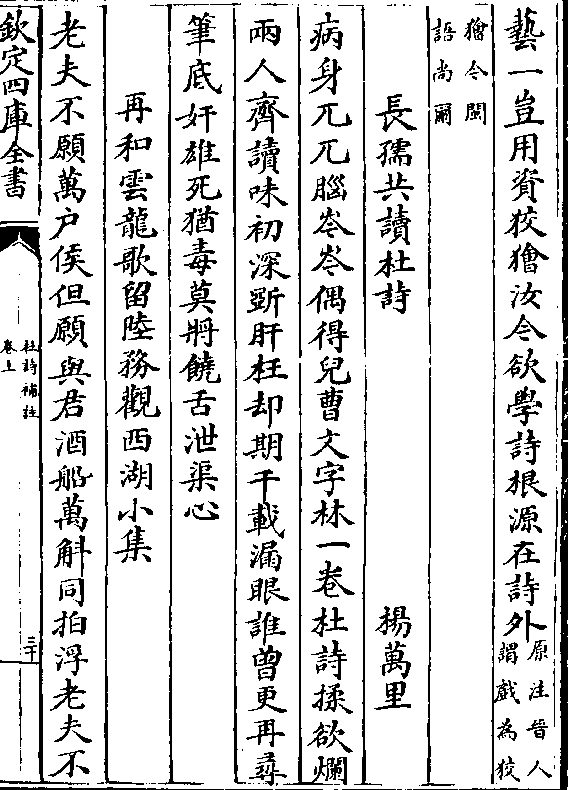 藝一豈用資狡獪汝今欲學詩根源在詩外原注晉人謂戲為狡
獪今閩語尚爾
長孺共讀杜詩 楊萬里
病身兀兀腦岑岑偶得兒曹文字林一卷杜詩揉欲爛
兩人齊讀味初深斲肝枉却期千載漏眼誰曽更再尋
筆底奸雄死猶毒莫將饒舌泄渠心
再和雲龍歌留陸務觀西湖小集
老夫不願萬户侯但願與君酒船萬斛同拍浮老夫不
欽定四庫全書
杜詩補註
卷上
三十